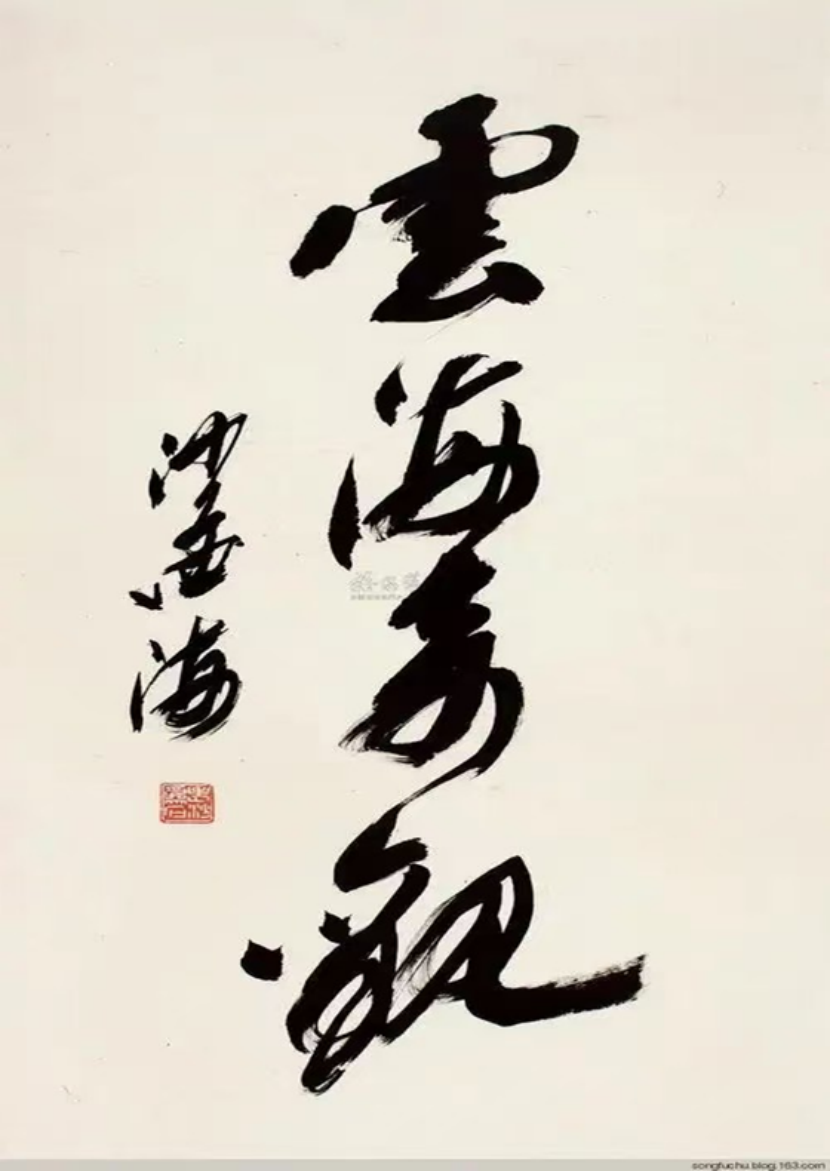 雲海奇觀
沙孟海
songfuchu.blog.163.com